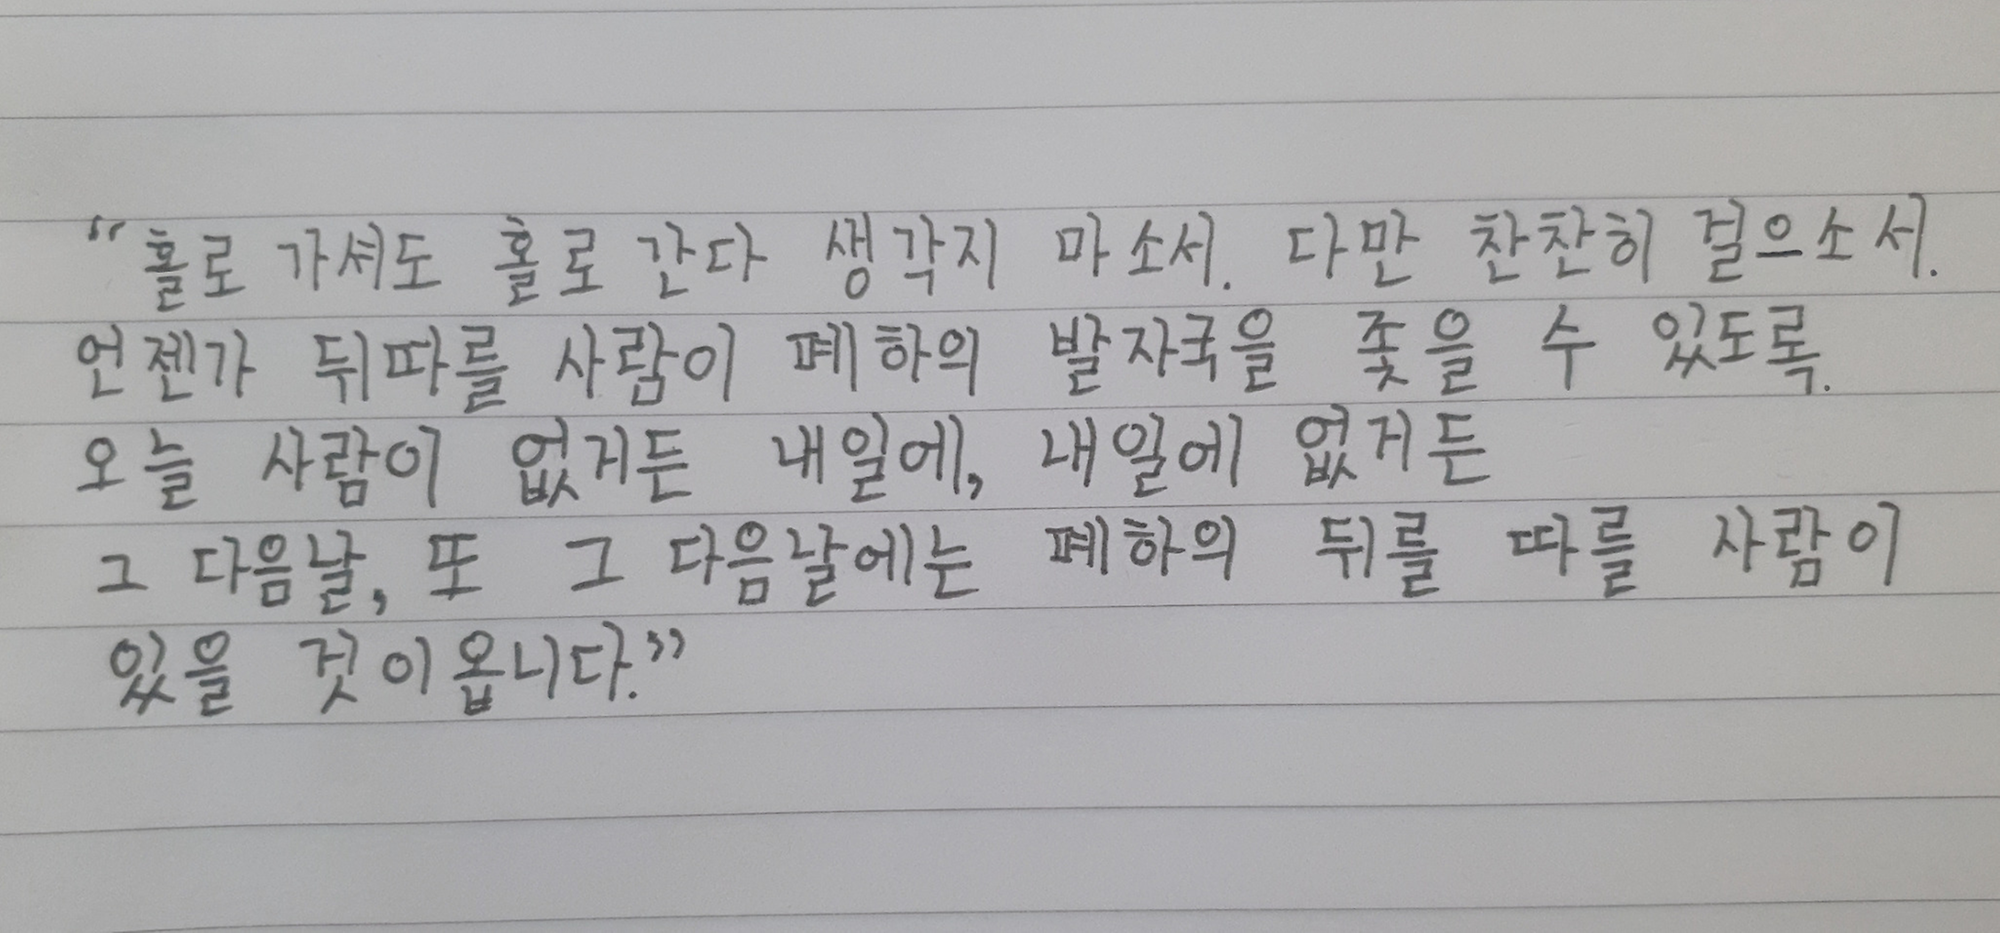 “홀로 가셔도 홀로 간다 생각지 마소서. 다만 찬찬히 걸으소서.
언젠가 뒤따를 사람이 폐하의 발자국을 좇을 수 있도록.
오늘 사람이 없거든 내일에, 내일에 없거든
그 다음날, 또 그 다음날에는 폐하의 뒤를 따를 사람이
있을 것이옵니다.”